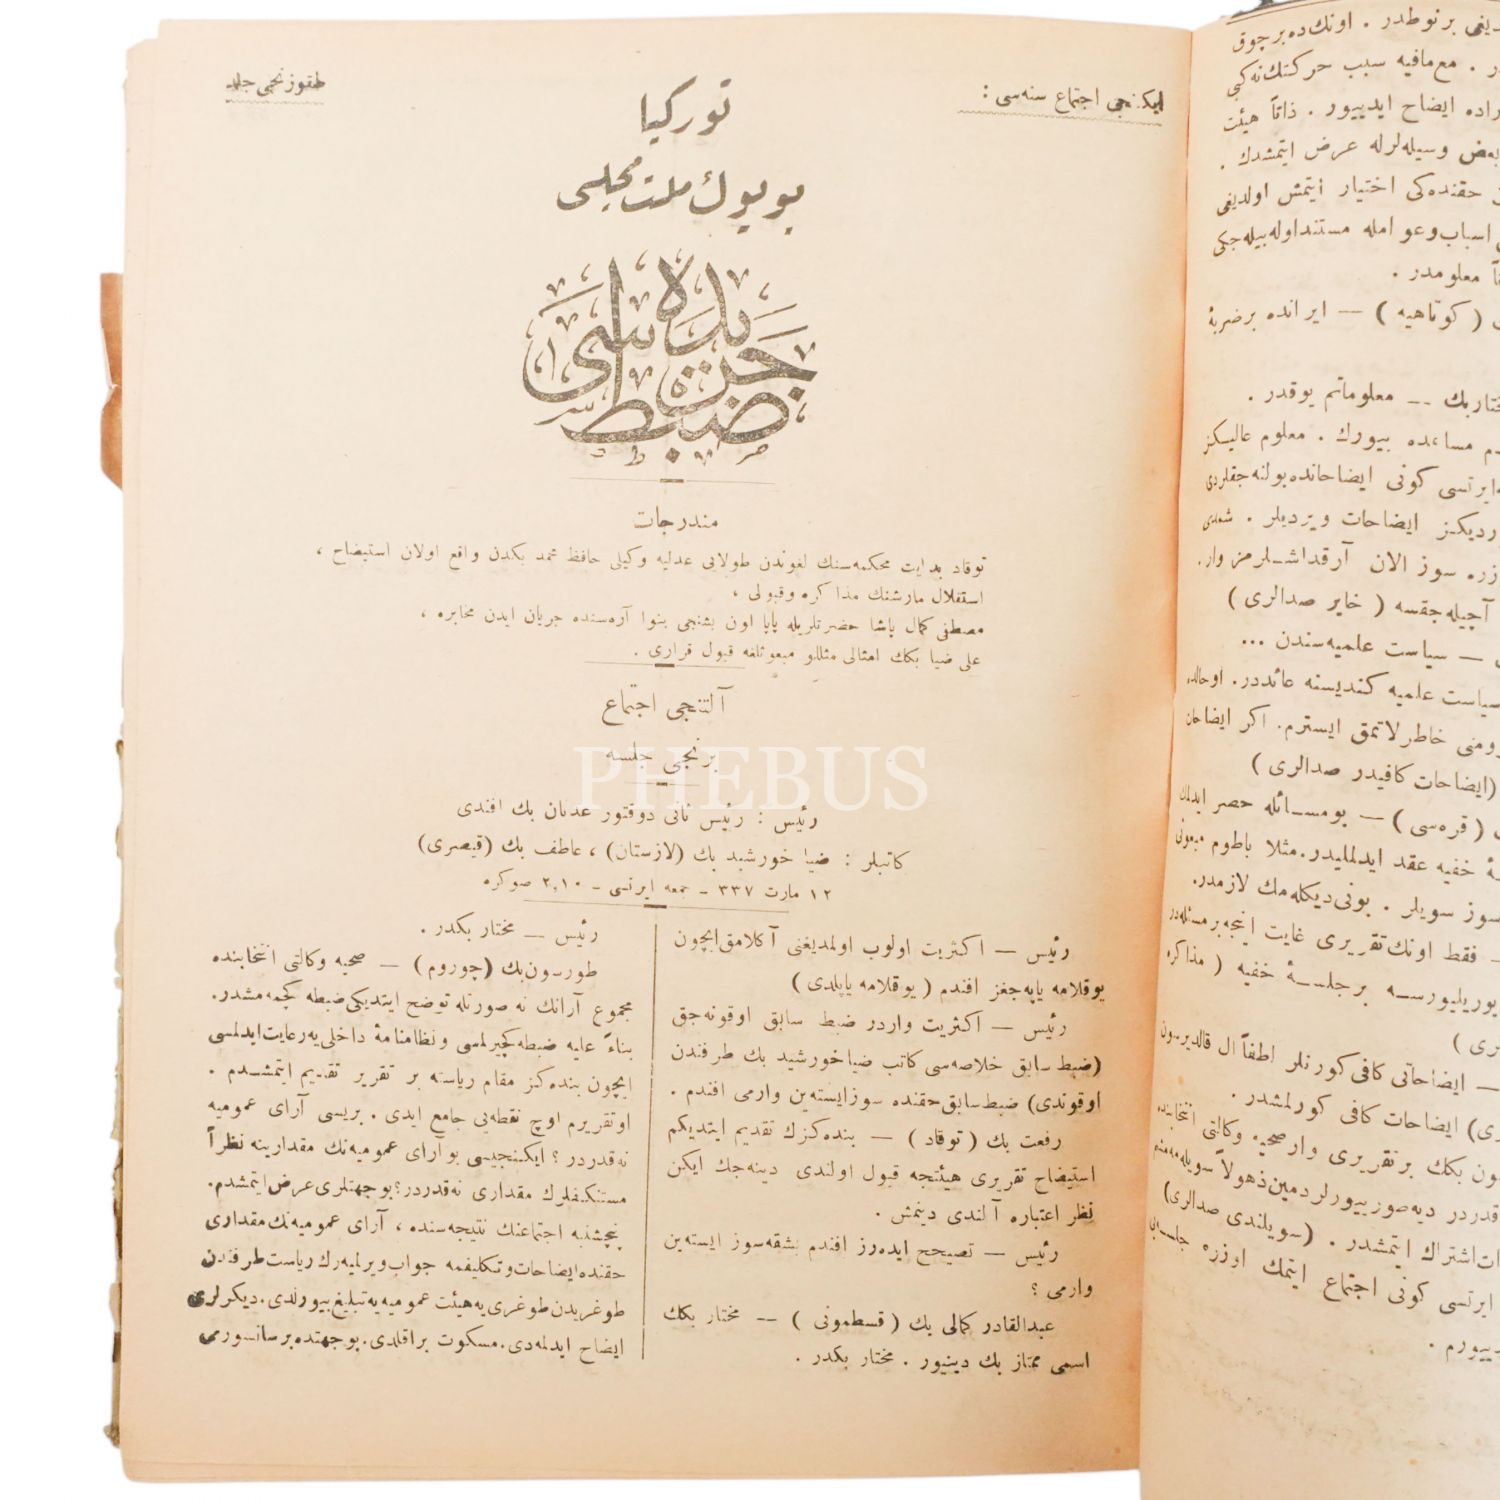 ايكنجی اجتماع سنه‌سی :
طقوزنجی جلد
توركيا
بويوك ملت مجلسی
ضبط جريده‌سی
مندرجات
توقاد بدايت محكمه‌سنك لغوندن طولايی عدليه وكيلی حافظ محمد بكدن واقع اولان استيضاح ،
استقلال مارشنك مذاكره وقبولی ،
مصطفی كمال پاشا حضرتلريله پاپا اون بشنجی بنوا آره‌سنده جريان ايدن مخابره ،
علی ضيا بكك امثالی مثللو مبعوثلغه قبول قراری .
آلتنجی اجتماع
برنجی جلسه
PHEBUS
رئيس : رئيس ثانی دوقتور عدنان بك افندی
كاتبلر : ضيا خورشيد بك (لازستان) ، عاطف بك (قيصری)
١٢ مارت ٣٣٧ - جمعه ايرتسی - ٢,١٠ صوكره
رئيس — اكثريت اولوب اولمديغنی آكلامق ايچون
يوقلامه ياپه‌جغز افندم ( يوقلامه ياپلدی )
رئيس — اكثريت واردر ضبط سابق اوقونه‌جق
(ضبط سابق خلاصه‌سی كاتب ضيا خورشيد بك طرفندن
اوقوندی) ضبط سابق حقنده سوز ايسته‌ين وارمی افندم .
رفعت بك ( توقاد ) — بنده‌كزك تقديم ايتديكم
استيضاح تقريری هيئتجه قبول اولندی دينه‌جك ايكن
نظر اعتباره آلندی دينمش .
رئيس — تصحيح ايده‌رز افندم بشقه سوز ايسته‌ين
وارمی ؟
عبدالقادر كمالی بك ( قسطمونی ) — مختار بكك
اسمی ممتاز بك دينيور . مختار بكدر .
رئيس — مختار بكدر .
طورسون بك (چوروم) — صحيه وكالتی انتخابنده
مجموع آرانك نه صورتله توضح ايتديكی ضبطه كچمه‌مشدر.
بناءً عليه ضبطه كچيرلمسی ونظامنامهٔ داخلی‌يه رعايت ايدلمسی
ايچون بنده‌كز مقام رياسته بر تقرير تقديم ايتمشدم .
او تقريرم اوچ نقطه‌يی جامع ايدی . بريسی آرای عموميه
نه قدردر ؟ ايكينجيسی بو آرای عموميه‌نك مقدارينه نظراً
مستنكفلرك مقداری نه قدردر؟ بو جهتلری عرض ايتمشدم.
پنچشنبه اجتماعنك نتيجه‌سنده ، آرای عموميه‌نك مقداری
حقنده ايضاحات وتكليفمه جواب ويرلميه‌رك رياست طرفندن
طوغريدن طوغری‌يه هيئت عموميه‌يه تبليغ بيورلدی. ديكرلری
ايضاح ايدلمه‌دی. مسكوت براقلدی. بو جهتده بر سانسورمی
ديغی بر نوطدر . اونك ده بر چوق
ر . مع مافيه سبب حركتك نه كبی
راده ايضاح ايدييور . ذاتاً هيئت
بعض وسيله‌لرله عرض ايتمشدك .
حقنده‌كی اختيار ايتمش اولديغی
اسباب وعوامله مستند اوله‌بيله‌جكی
معلومدر .
( كوتاهيه ) — ايرانده بر ضربهٔ
ختار بك — معلوماتم يوقدر .
م مساعده بيورك . معلوم عاليكز
ايرتسی كونی ايضاحاتده بولنه‌جقلردی
رديكز ايضاحات ويرديلر . شمدی
زره سوز الان آرقداشلرمز وار.
آچيله‌جقسه ( خاير صدالری )
— سياست علميه‌سندن ...
سياست علميه كنديسنه عائددر. اوحالده
رومنی خاطرلاتمق ايسترم. اكر ايضاحات
(ايضاحات كافيدر صدالری )
( قره‌سی ) — بو مسائله حصر ايدلمك
هٔ خفيه عقد ايدلمليدر. مثلا باطوم مبعوثی
سوز سويلر . بونی ديكله‌مك لازمدر.
— فقط اونك تقريری غايت اينجه بر مسئله‌در
يوريليورسه بر جلسهٔ خفيه ( مذاكره
ری )
— ايضاحاتی كافی كورنلر لطفاً ال قالديرسون
ری) ايضاحات كافی كورلمشدر .
ون بكك بر تقريری وار صحيه وكالتی انتخابنده
قدردر ديه صور بيورلر دمين ذهولاً سويله‌مه‌مشم
ات اشتراك ايتمشدر . (سويلندی صدالری)
ايرتسی كونی اجتماع ايتمك اوزره جلسه‌يی
دييورم .